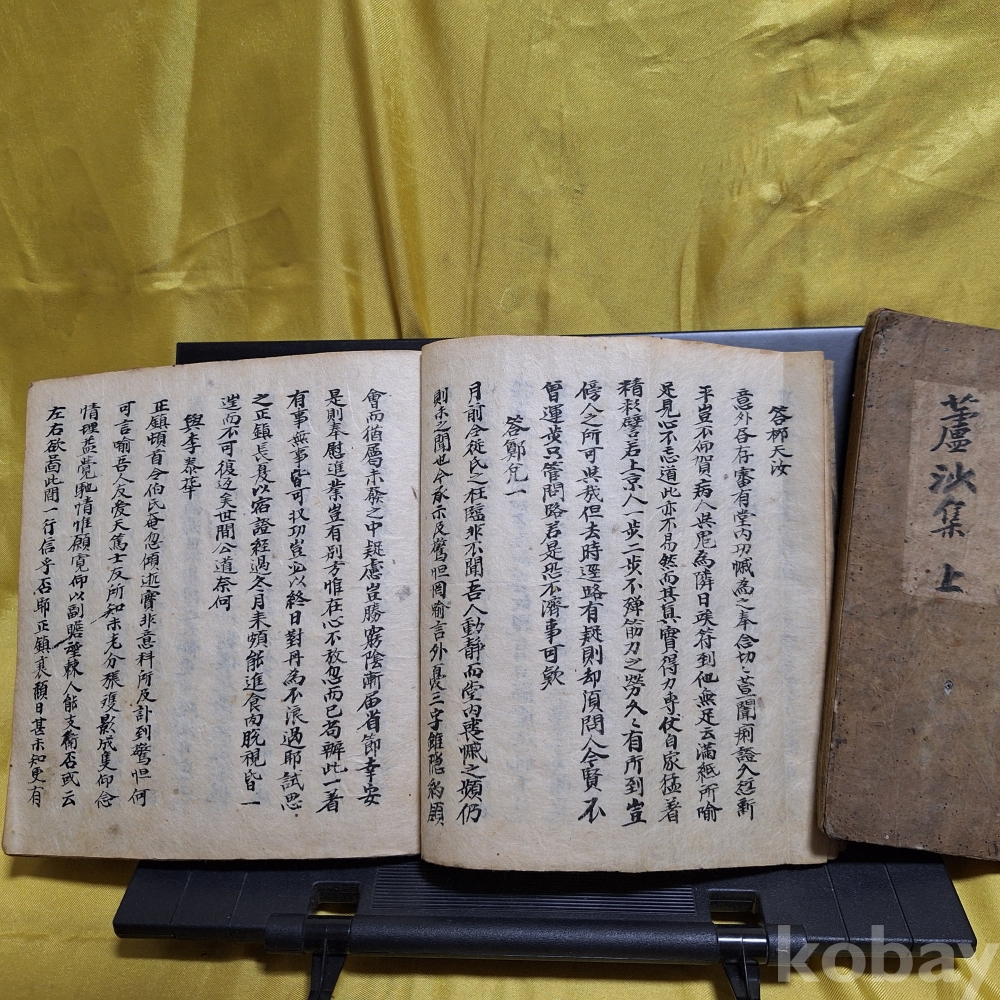 答鄭天汝
意外各存審有堂內功慽為之奉念切〻荳聞痢證久愆漸
平豈不仰賀病人此鬼為隣日竢符到他無足云滿紙所喻
足見心不忘道此亦不易然而其真實得力專仗自家猛著
精彩譬若上京人一步二步不殫筋力之勞久〻有所到豈
傍人之所可與哉但去時逕路有疑則却須問人今賢不
曾運步只管問路若是恐不濟事可歎
答鄭允一
月前令從氏之枉臨非不聞吾人動靜而堂內喪慽之頻仍
則未之聞也今承示及驚怛罔喻言外憂三字雖隱約頗
會而猶屬未發之中疑慮豈勝窮陰漸屆省節幸安
是則奉慰進業豈有別方惟在心不放忽而已苟辦此一著
有事無事皆可收功豈必以終日對冊為不浪過耶試思
之正鎮長夏以宿證經過冬月未頻能進食肉脫視昏一
進而不可復返矣世間公道奈何
與李泰華
正鎮頓首令伯氏奄忽傾逝實非意料所及訃到驚怛何
可言喻吾人友愛天篤士友所知未老分張隻影成隻仰念
情理益覺馳情惟願寬仰以副瞻望棘人能支衛否或云
左右欲啚此間一行信乎否耶正鎮衰頹日甚未知更有
蘆沙集 上
kobay